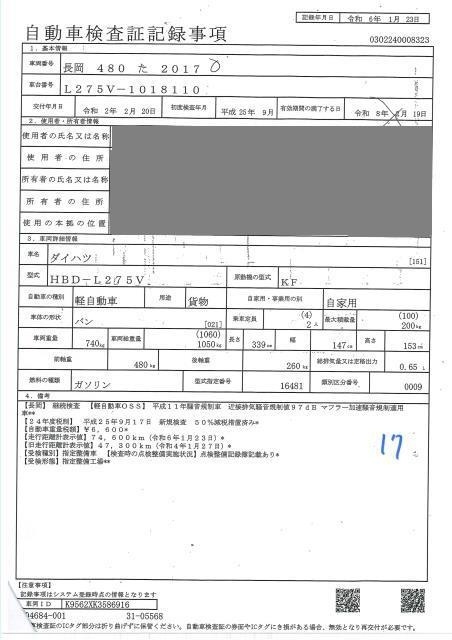 記録年月日 令和 6年 1月 23日
自動車検査証記録事項
0302240008323
1．基本情報
車両番号 長岡 480 た 2017
車台番号 L275V-1018110
交付年月日 令和 2年 2月 20日 初度検査年月 平成 25年 9月 有効期間の満了する日 令和 8年 月 19日
2．使用者・所有者情報
使用者の氏名又は名称
使用者の住所
所有者の氏名又は名称
所有者の住所
使用の本拠の位置
3．車両詳細情報
車名 ダイハツ [151]
型式 HBD-L275V 原動機の型式 KF
自動車の種別 軽自動車 用途 貨物 自家用・事業用の別 自家用
車体の形状 バン [021] 乗車定員 (4) 2人 最大積載量 (100) 200kg
車両重量 740kg 車両総重量 (1060) 1050kg 長さ 339cm 幅 147cm 高さ 153cm
前軸重 480kg 後軸重 260kg 総排気量又は定格出力 0.65 L
燃料の種類 ガソリン 型式指定番号 16481 類別区分番号 0009
4．備考
【長岡】 継続検査 【軽自動車OSS】 平成11年騒音規制車 近接排気騒音規制値97dB マフラー加速騒音規制適用
車**
【24年度税額】 平成25年9月17日 新規検査 50%減税措置済み*
[自動車重量税額] ¥6,600*
[走行距離計表示値] 74,600km (令和6年1月23日)*
[旧走行距離計表示値] 47,300km (令和4年1月27日)*
[受検種別] 指定整備車 【検査時の点検整備実施状況】 点検整備記録簿記載あり*
[受検形態] 指定整備工場**
17
【注意事項】
記載事項はシステム登録時点の情報となります
車両ID K9562XK3586916
04684-001 31-05568
車検査証のICタグ部分は折り曲げずに保管ください。自動車検査証の券面やICタグにき損がある場合、無効となり再交付が必要です。